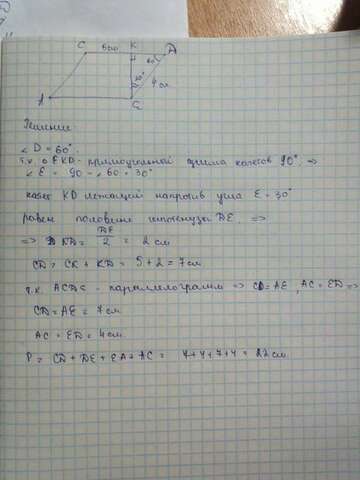 C K D
60°
30°
4 см
A E
Решение:
∠D = 60°.
т.к. △ EKD - прямоугольный сумма катетов 90°, ⇒
∠E = 90 - ∠60 = 30°
катет KD лежащий напротив угла E = 30°
равен половине гипотенузы DE, ⇒
⇒ KD = DE/2 = 2 см
CD = CK + KD = 5 + 2 = 7 см.
т.к. ACDE - параллелограмм ⇒ CD = AE, AC = ED ⇒
CD = AE = 7 см.
AC = ED = 4 см.
P = CD + DE + EA + AC = 7+4+7+4 = 22 см.